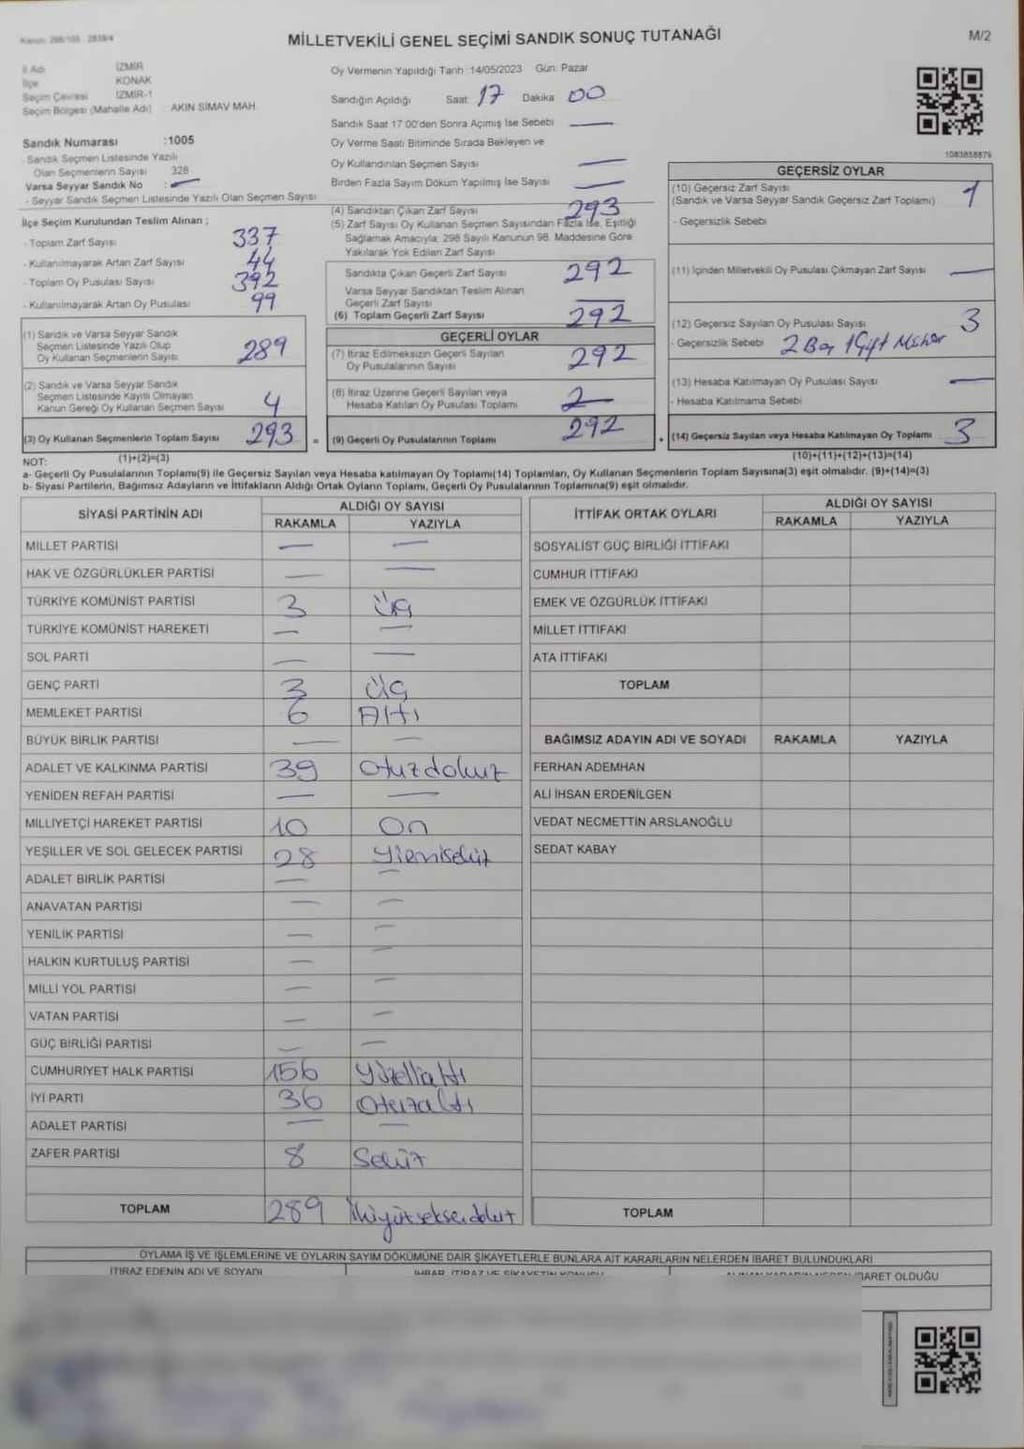 MİLLETVEKİLİ GENEL SEÇİMİ SANDIK SONUÇ TUTANAĞI
M/2
İl Adı İZMİR
İlçe KONAK
Seçim Çevresi İZMİR-1
Seçim Bölgesi (Mahalle Adı) AKIN SİMAV MAH.
Oy Vermenin Yapıldığı Tarih :14/05/2023 Gün: Pazar
Sandığın Açıldığı Saat 17 Dakika 00
Sandık Saat 17:00'den Sonra Açımış İse Sebebi —
Oy Verme Saati Bitiminde Sırada Bekleyen ve
Oy Kullandırılan Seçmen Sayısı —
Birden Fazla Sayım Döküm Yapılmış İse Sayısı —
Sandık Numarası :1005
- Sandık Seçmen Listesinde Yazılı
Olan Seçmenlerin Sayısı 328
Varsa Seyyar Sandık No : —
- Seyyar Sandık Seçmen Listesinde Yazılı Olan Seçmen Sayısı
1083858879
İlçe Seçim Kurulundan Teslim Alınan ;
- Toplam Zarf Sayısı 337
- Kullanılmayarak Artan Zarf Sayısı 44
- Toplam Oy Pusulası Sayısı 392
- Kullanılmayarak Artan Oy Pusulası 99
(1) Sandık ve Varsa Seyyar Sandık
Seçmen Listesinde Yazılı Olup
Oy Kullanan Seçmenlerin Sayısı 289
(2) Sandık ve Varsa Seyyar Sandık
Seçmen Listesinde Kayıtlı Olmayan
Kanun Gereği Oy Kullanan Seçmen Sayısı 4
(3) Oy Kullanan Seçmenlerin Toplam Sayısı 293
(4) Sandıktan Çıkan Zarf Sayısı 293
(5) Zarf Sayısı Oy Kullanan Seçmen Sayısından Fazla İse, Eşitliği
Sağlamak Amacıyla, 298 Sayılı Kanunun 98. Maddesine Göre
Yakılarak Yok Edilen Zarf Sayısı
Sandıkta Çıkan Geçerli Zarf Sayısı 292
Varsa Seyyar Sandıktan Teslim Alınan
Geçerli Zarf Sayısı —
(6) Toplam Geçerli Zarf Sayısı 292
GEÇERLİ OYLAR
(7) İtiraz Edilmeksizin Geçerli Sayılan
Oy Pusulalarının Sayısı 292
(8) İtiraz Üzerine Geçerli Sayılan veya
Hesaba Katılan Oy Pusulası Toplamı
= (9) Geçerli Oy Pusulalarının Toplamı 292
GEÇERSİZ OYLAR
(10) Geçersiz Zarf Sayısı
(Sandık ve Varsa Seyyar Sandık Geçersiz Zarf Toplamı) 1
- Geçersizlik Sebebi
(11) İçinden Milletvekili Oy Pusulası Çıkmayan Zarf Sayısı —
(12) Geçersiz Sayılan Oy Pusulası Sayısı 3
- Geçersizlik Sebebi 2 Boş 1 Çift Mühür
(13) Hesaba Katılmayan Oy Pusulası Sayısı —
- Hesaba Katılmama Sebebi
(14) Geçersiz Sayılan veya Hesaba Katılmayan Oy Toplamı 3
NOT: (1)+(2)=(3) (10)+(11)+(12)+(13)=(14)
a- Geçerli Oy Pusulalarının Toplamı(9) ile Geçersiz Sayılan veya Hesaba katılmayan Oy Toplamı(14) Toplamları, Oy Kullanan Seçmenlerin Toplam Sayısına(3) eşit olmalıdır. (9)+(14)=(3)
b- Siyasi Partilerin, Bağımsız Adayların ve İttifakların Aldığı Ortak Oyların Toplamı, Geçerli Oy Pusulalarının Toplamına(9) eşit olmalıdır.
SİYASİ PARTİNİN ADI ALDIĞI OY SAYISI
RAKAMLA YAZIYLA
MİLLET PARTİSİ — —
HAK VE ÖZGÜRLÜKLER PARTİSİ — —
TÜRKİYE KOMÜNİST PARTİSİ 3 Üç
TÜRKİYE KOMÜNİST HAREKETİ — —
SOL PARTİ — —
GENÇ PARTİ 3 Üç
MEMLEKET PARTİSİ 6 Altı
BÜYÜK BİRLİK PARTİSİ — —
ADALET VE KALKINMA PARTİSİ 39 Otuzdokuz
YENİDEN REFAH PARTİSİ — —
MİLLİYETÇİ HAREKET PARTİSİ 10 On
YEŞİLLER VE SOL GELECEK PARTİSİ 28 Yirmisekiz
ADALET BİRLİK PARTİSİ — —
ANAVATAN PARTİSİ — —
YENİLİK PARTİSİ — —
HALKIN KURTULUŞ PARTİSİ — —
MİLLİ YOL PARTİSİ — —
VATAN PARTİSİ — —
GÜÇ BİRLİĞİ PARTİSİ — —
CUMHURİYET HALK PARTİSİ 156 Yüzelli altı
İYİ PARTİ 36 Otuzaltı
ADALET PARTİSİ — —
ZAFER PARTİSİ 8 Sekiz
TOPLAM 289 İkiyüzseksendokuz
İTTİFAK ORTAK OYLARI ALDIĞI OY SAYISI
RAKAMLA YAZIYLA
SOSYALİST GÜÇ BİRLİĞİ İTTİFAKI
CUMHUR İTTİFAKI
EMEK VE ÖZGÜRLÜK İTTİFAKI
MİLLET İTTİFAKI
ATA İTTİFAKI
TOPLAM
BAĞIMSIZ ADAYIN ADI VE SOYADI RAKAMLA YAZIYLA
FERHAN ADEMHAN
ALİ İHSAN ERDENİLGEN
VEDAT NECMETTİN ARSLANOĞLU
SEDAT KABAY
TOPLAM
OYLAMA İŞ VE İŞLEMLERİNE VE OYLARIN SAYIM DÖKÜMÜNE DAİR ŞİKAYETLERLE BUNLARA AİT KARARLARIN NELERDEN İBARET BULUNDUKLARI
İTİRAZ EDENİN ADI VE SOYADI İHBAR, İTİRAZ VE ŞİKAYETİN KONUSU İBARET OLDUĞU